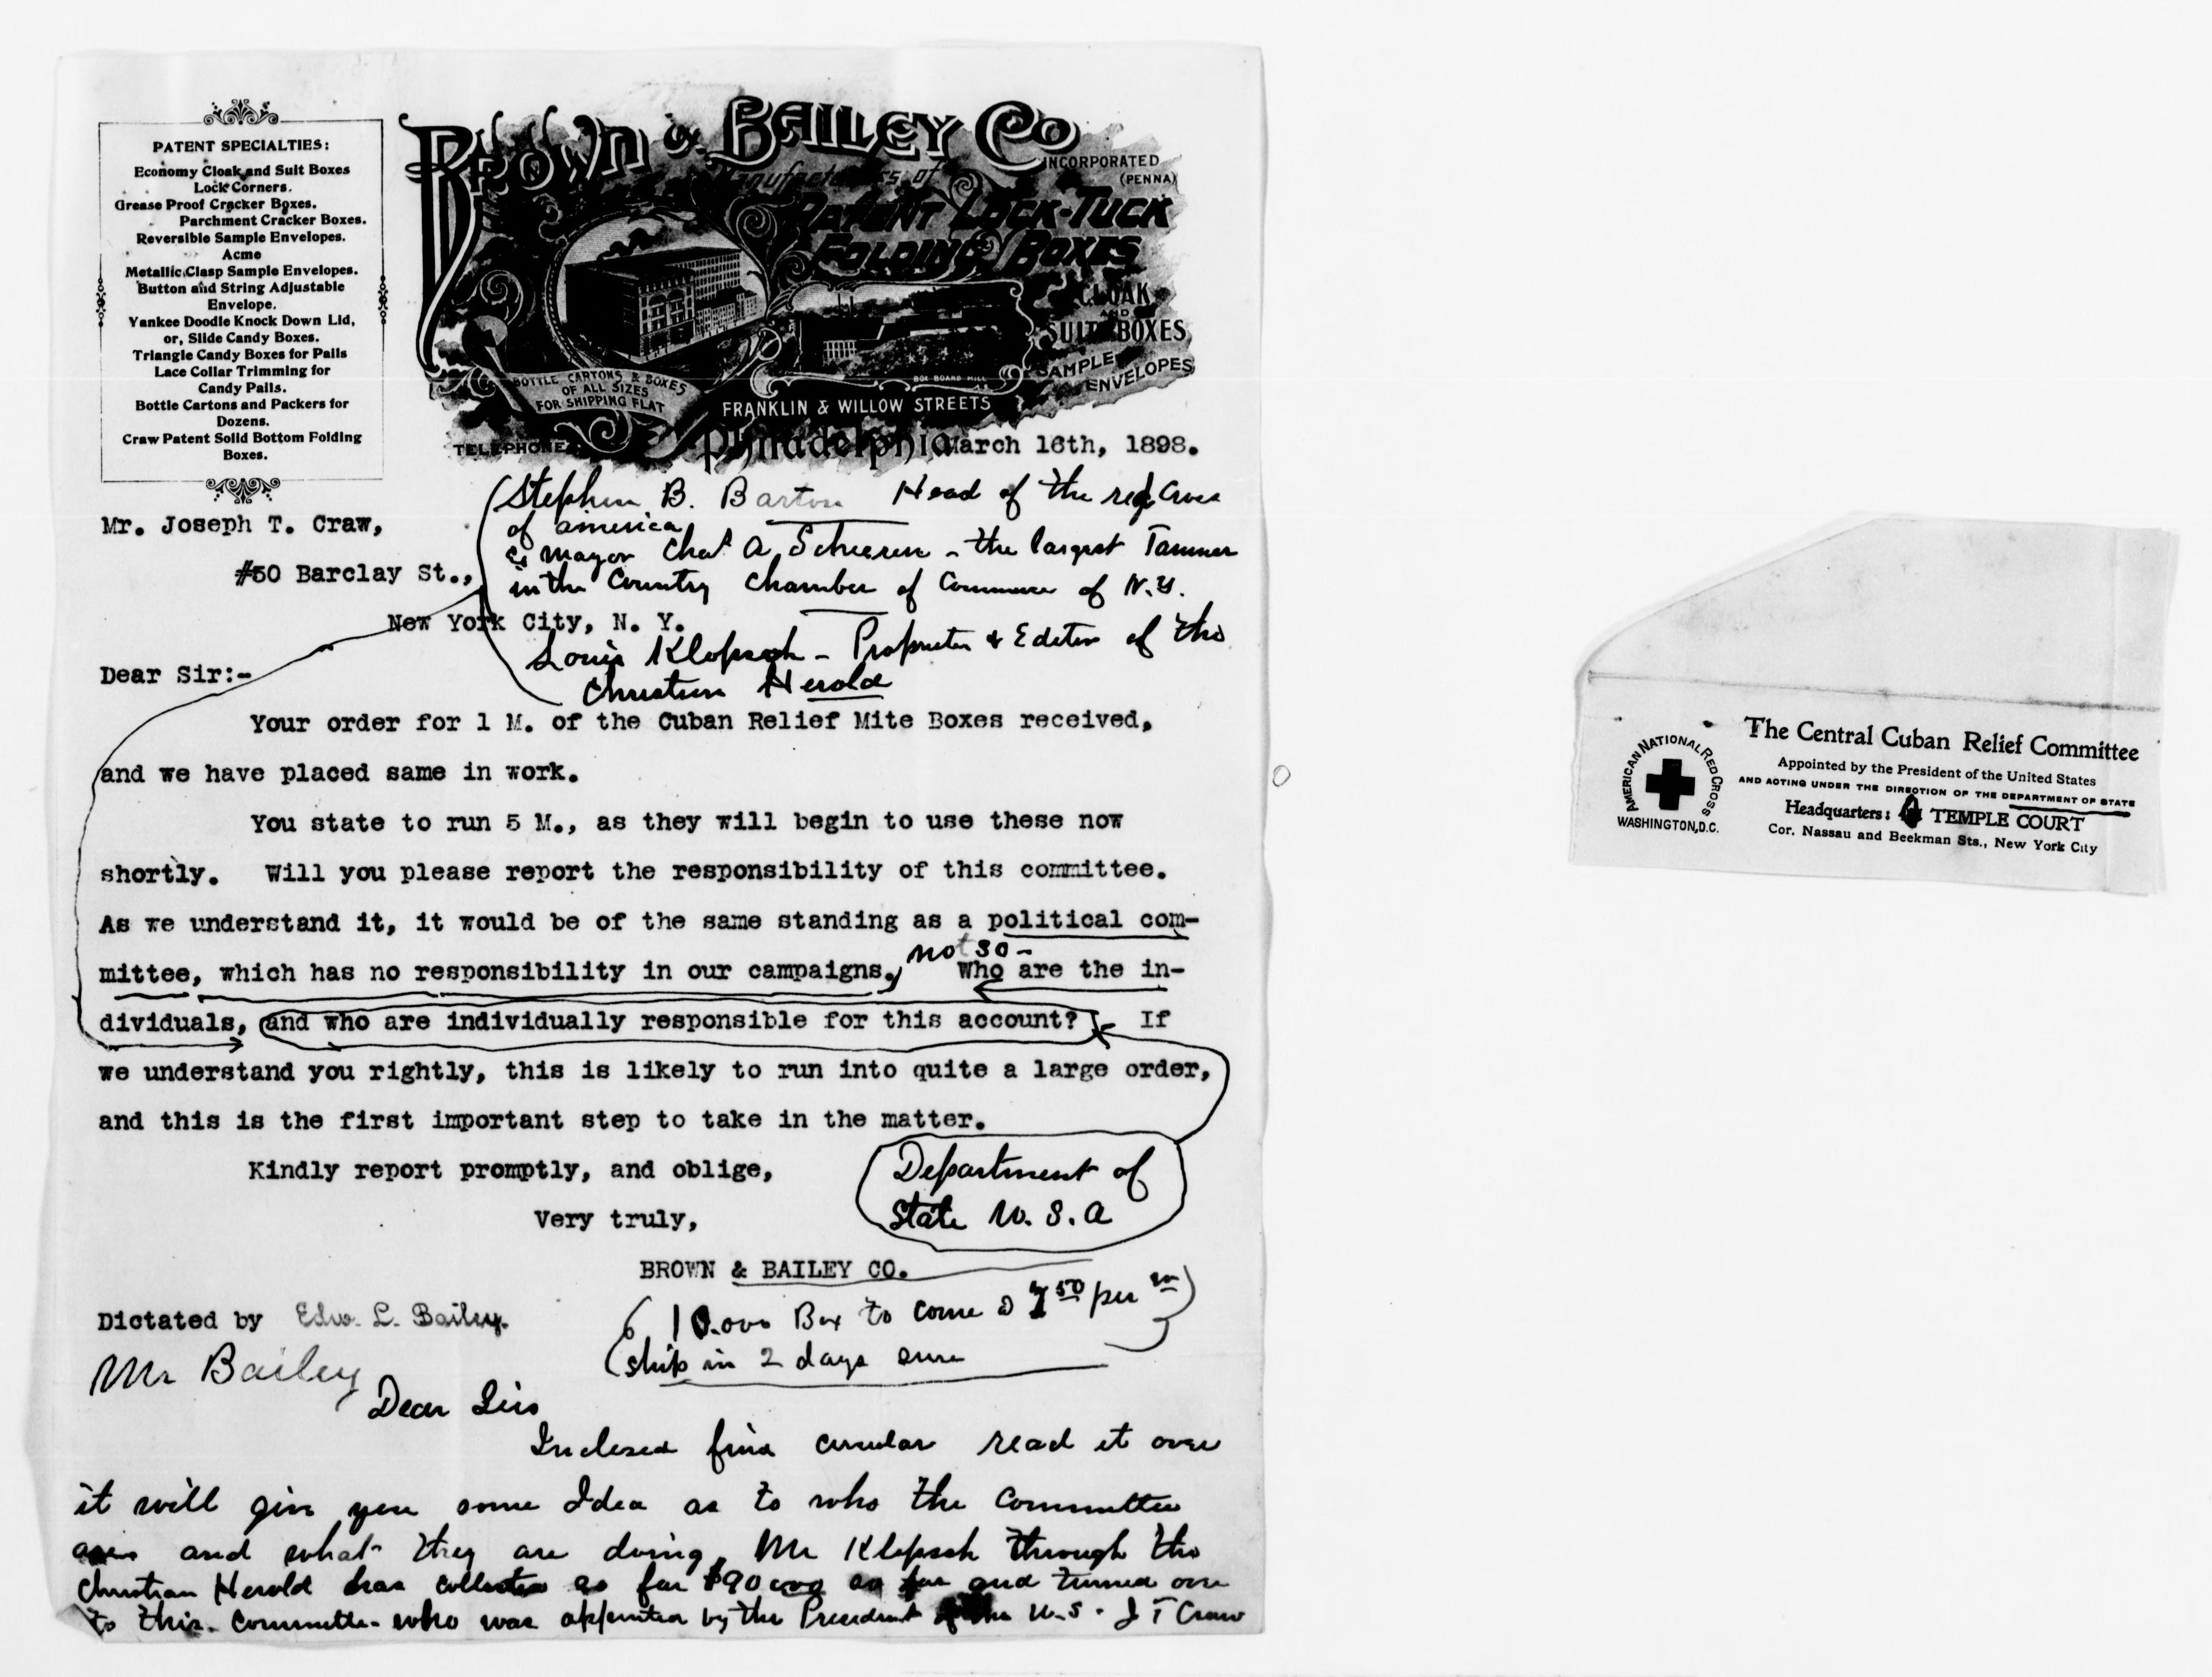 PATENT SPECIALTIES:
Economy Cloak and Suit Boxes
Lock Corners.
Grease Proof Cracker Boxes.
Parchment Cracker Boxes.
Reversible Sample Envelopes.
Acme
Metallic Clasp Sample Envelopes.
Button and String Adjustable
Envelope.
Yankee Doodle Knock Down Lid,
or, Slide Candy Boxes.
Triangle Candy Boxes for Pails
Lace Collar Trimming for
Candy Pails.
Bottle Cartons and Packers for
Dozens.
Craw Patent Solid Bottom Folding
Boxes.
BROWN & BAILEY CO
INCORPORATED
(PENNA)
Manufacturers of
PATENT LOCK-TUCK
FOLDING BOXES
CLOAK
AND
SUIT BOXES
SAMPLE
ENVELOPES
BOX BOARD MILL
BOTTLE CARTONS & BOXES
OF ALL SIZES
FOR SHIPPING FLAT
FRANKLIN & WILLOW STREETS
TELEPHONE
Philadelphia March 16th, 1898.
(Stephen B. Barton Head of the red Cross
of america
Ex mayor Chas A. Schieren - the largest Tanner
in the Country Chamber of Commerce of N.Y.
Louis Klopsch - Proprietor & Editor of the
Christian Herold
Mr. Joseph T. Craw,
#50 Barclay St.,
New York City, N. Y.
Dear Sir:-
Your order for 1 M. of the Cuban Relief Mite Boxes received,
and we have placed same in work.
You state to run 5 M., as they will begin to use these now
shortly. Will you please report the responsibility of this committee.
As we understand it, it would be of the same standing as a political com-
mittee, which has no responsibility in our campaigns. not so - Who are the in-
dividuals, and who are individually responsible for this account? If
we understand you rightly, this is likely to run into quite a large order,
and this is the first important step to take in the matter.
Kindly report promptly, and oblige,
Very truly,
Department of
State U. S. A
BROWN & BAILEY CO.
Dictated by Edw. L. Bailey.
(10.000 Box to come @ 7 50 per m)
(ship in 2 days sure
Mr Bailey
Dear Sir
Inclosed find circular read it over
it will give you some Idea as to who the Committee
are and what they are doing. Mr Klopsch through the
Christian Herold has collected so far $90 000 so far and turned over
to this. Committee. who was appointed by the President of the U.S. J T Craw
AMERICAN NATIONAL RED CROSS
WASHINGTON, D.C.
The Central Cuban Relief Committee
Appointed by the President of the United States
AND ACTING UNDER THE DIRECTION OF THE DEPARTMENT OF STATE
Headquarters: TEMPLE COURT
Cor. Nassau and Beekman Sts., New York City